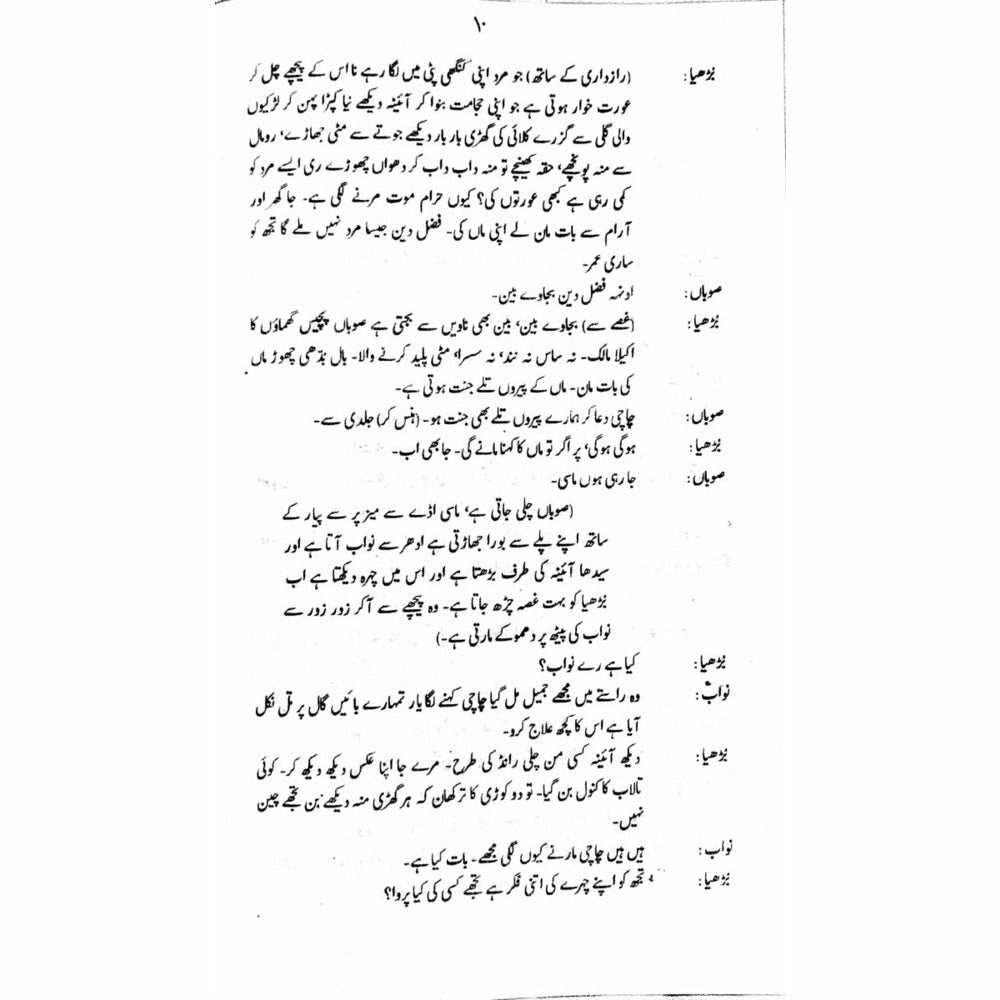 ۱۰
بُڑھیا: (رازداری کے ساتھ) جو مرد اپنی کنگھی پٹی میں لگا رہے نا اس کے پیچھے چل کر
عورت خوار ہوتی ہے جو اپنی حجامت بنوا کر آئینہ دیکھے نیا کپڑا پہن کر لڑکیوں
والی گلی سے گزرے کلائی کی گھڑی بار بار دیکھے جوتے سے مٹی جھاڑے، رومال
سے منہ پونچھے، حقہ کھینچے تو منہ داب داب کر دھواں چھوڑے ری ایسے مرد کو
کمی رہی ہے کبھی عورتوں کی؟ کیوں حرام موت مرنے لگی ہے۔ جا گھر اور
آرام سے بات مان لے اپنی ماں کی۔ فضل دین جیسا مرد نہیں ملے گا تجھ کو
ساری عمر۔
صوباں: اونہہ فضل دین بجاوے بین۔
بُڑھیا: (غصے سے) بجاوے بین، بین بھی ناویں سے بجتی ہے صوباں پچیس گھماؤں کا
اکیلا مالک۔ نہ ساس نہ نند، نہ سسرا، مٹی پلید کرنے والا۔ بال بڈھی چھوڑ ماں
کی بات مان۔ ماں کے پیروں تلے جنت ہوتی ہے۔
صوباں: چاچی دعا کر ہمارے پیروں تلے بھی جنت ہو۔ (ہنس کر) جلدی سے۔
بُڑھیا: ہوگی ہوگی، پر اگر تو ماں کا کہنا مانے گی۔ جا بھی اب۔
صوباں: جا رہی ہوں ماسی۔
(صوباں چلی جاتی ہے، ماسی اڈے سے میز پر سے پیار کے
ساتھ اپنے پلے سے بورا جھاڑتی ہے ادھر سے نواب آتا ہے اور
سیدھا آئینہ کی طرف بڑھتا ہے اور اس میں چہرہ دیکھتا ہے اب
بُڑھیا کو بہت غصہ چڑھ جاتا ہے۔ وہ پیچھے سے آ کر زور زور سے
نواب کی پیٹھ پر دھموکے مارتی ہے۔)
بُڑھیا: کیا ہے رے نواب؟
نواب: وہ راستے میں مجھے جمیل مل گیا چاچی کہنے لگا یار تمہارے بائیں گال پر تل نکل
آیا ہے اس کا کچھ علاج کرو۔
بُڑھیا: دیکھ آئینہ کسی من چلی رانڈ کی طرح۔ مرے جا اپنا عکس دیکھ دیکھ کر۔ کوئی
تالاب کا کنول بن گیا۔ تو دو کوڑی کا ترکھان کہ ہر گھڑی منہ دیکھے بن تجھے چین
نہیں۔
نواب: ہیں ہیں چاچی مارنے کیوں لگی مجھے۔ بات کیا ہے۔
بُڑھیا: تجھ کو اپنے چہرے کی اتنی فکر ہے تجھے کسی کی کیا پروا؟